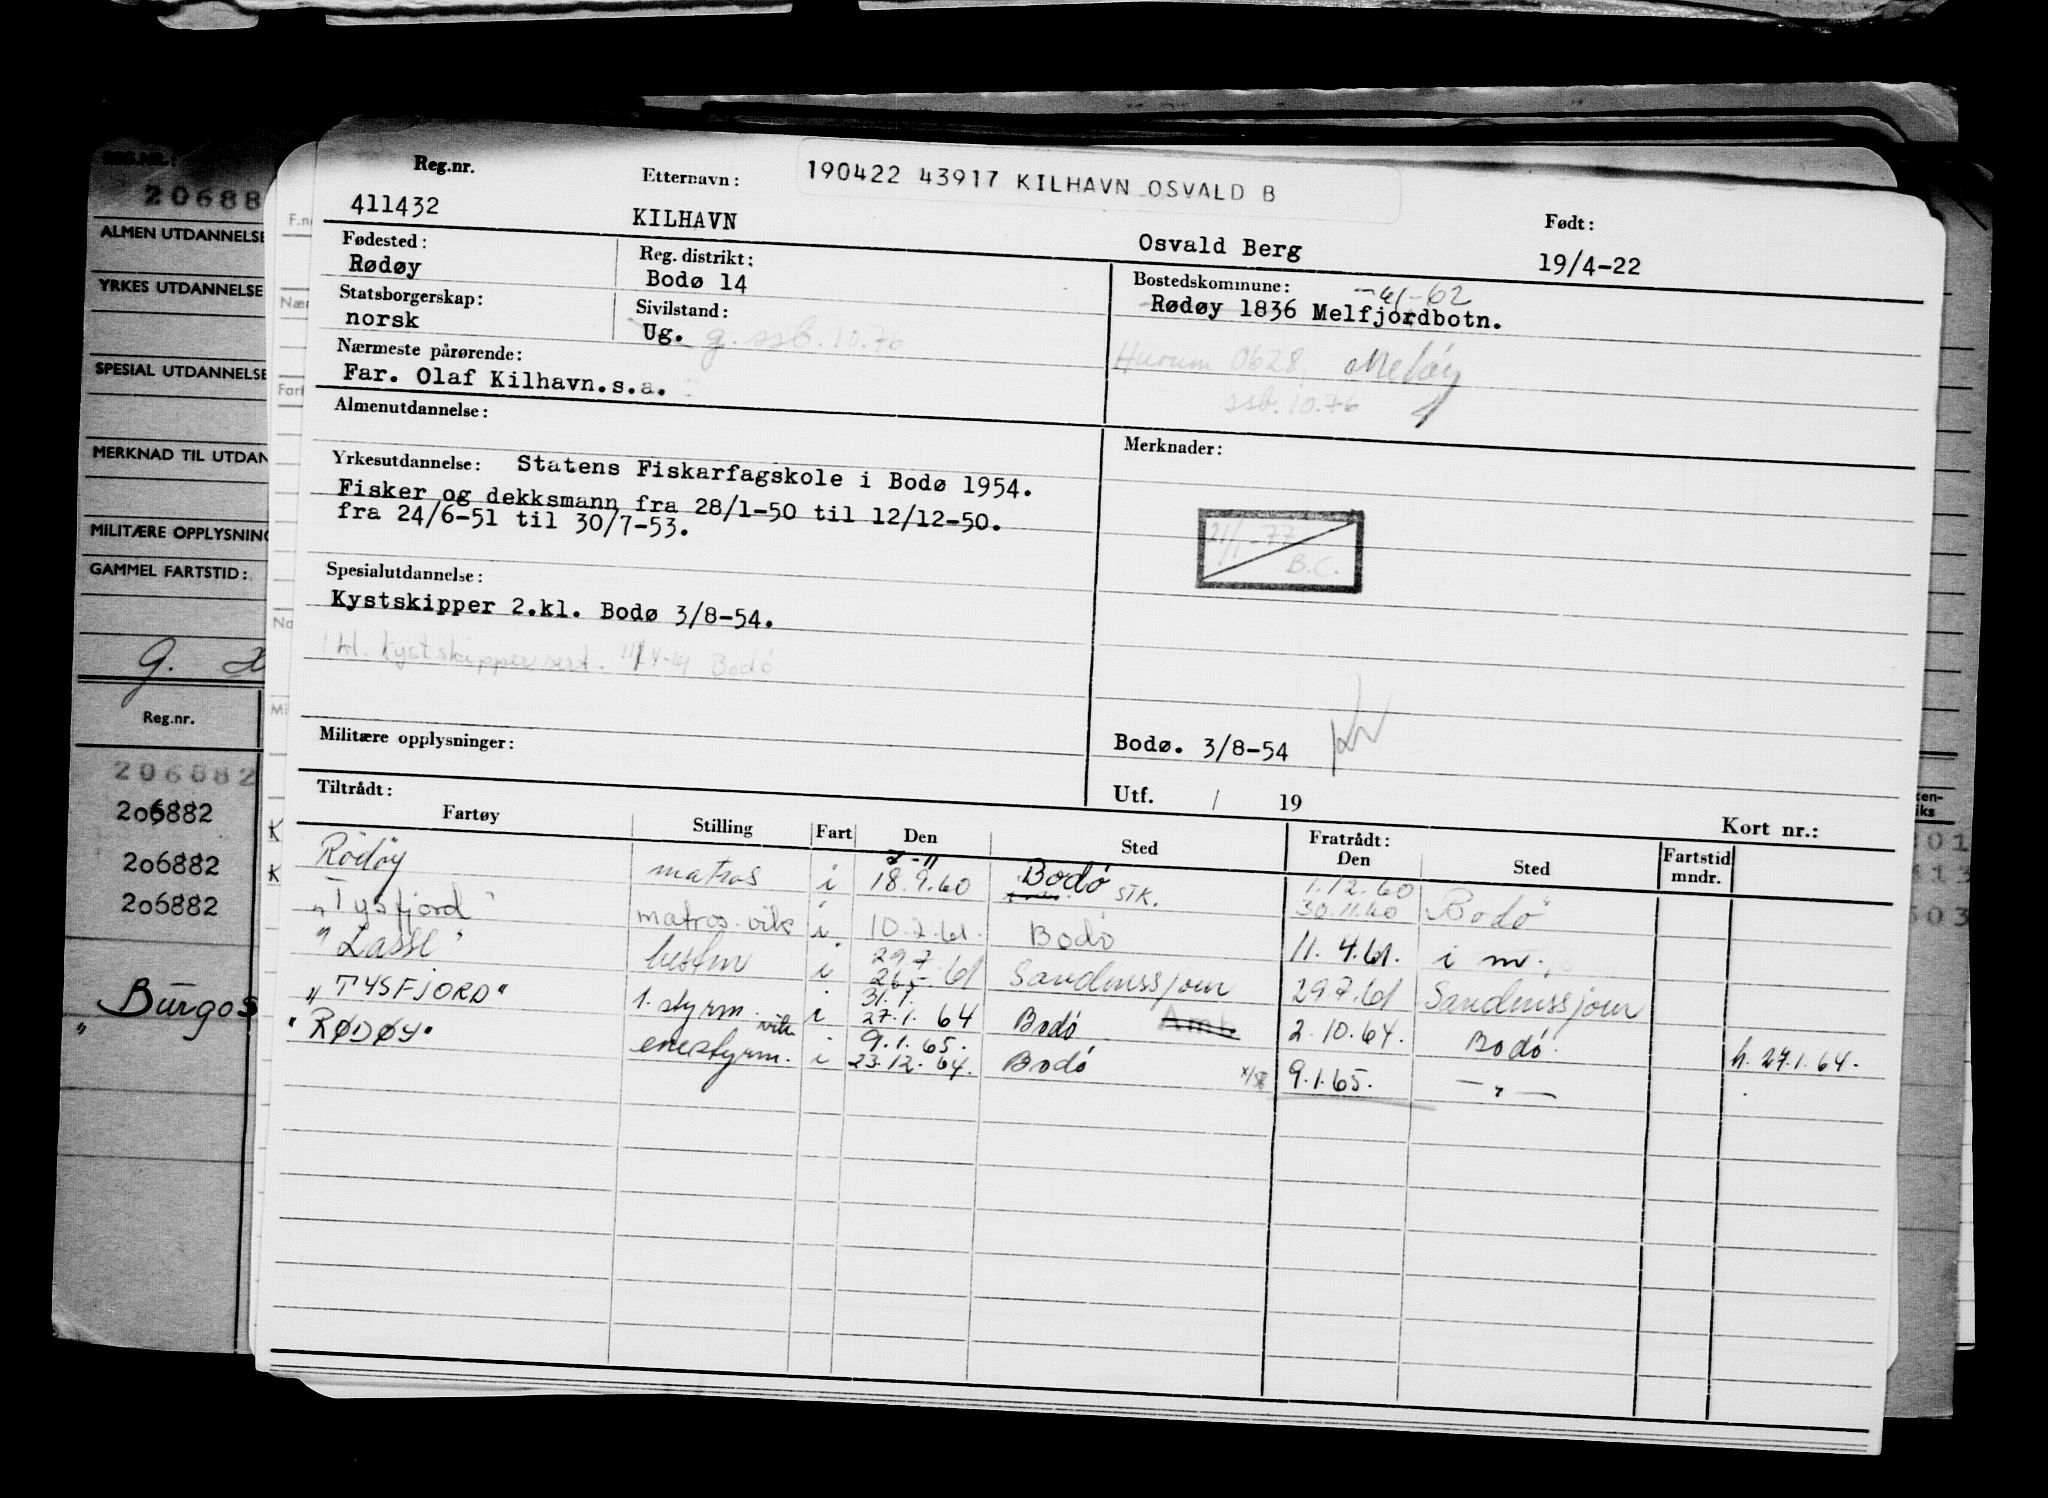 Reg.nr.
Etternavn:
190422 43917 KILHAVN OSVALD B
411432
KILHAVN
Osvald Berg
Født:
19/4-22
Fødested:
Rødøy
Reg. distrikt:
Bodø 14
Bostedskommune:
-61-62
Rødøy 1836 Melfjordbotn.
Statsborgerskap:
norsk
Sivilstand:
Ug. g. ssb. 10.76
Hurum 0628. Meløy
ssb. 10.76
Nærmeste pårørende:
Far. Olaf Kilhavn.s.a.
Almenutdannelse:
Merknader:
Yrkesutdannelse: Statens Fiskarfagskole i Bodø 1954.
Fisker og dekksmann fra 28/1-50 til 12/12-50.
fra 24/6-51 til 30/7-53.
21/1-77
B.C.
Spesialutdannelse:
Kystskipper 2.kl. Bodø 3/8-54.
1 kl. Kystskippersert. 11/4-61 Bodø
Militære opplysninger:
Bodø. 3/8-54
Utf. / 19
Kort nr.:
Tiltrådt:
Fartøy Stilling Fart Den Sted Fratrådt: Den Sted Fartstid mndr.
2-11 1.12.60
Rødøy matros i 18.9.60 Bodø STK. 30.11.60 Bodø
"Tysfjord" matros vik i 10.2.61. Bodø 11.4.61. i m.
29.7
"Lasse" bestm i 26.5-61 Sandnessjøen 29.7.61 Sandnessjøen
31.1.
"TYSFJORD" 1. styrm. vik i 27.1.64 Bodø Amt. 2.10.64. Bodø. h. 27.1.64.
9.1.65.
"RØDØY" enestyrm. i 23.12.64. Bodø 9.1.65. — " —
206882
ALMEN UTDANNELSE
YRKES UTDANNELSE
SPESIAL UTDANNELSE
MERKNAD TIL UTDAN
MILITÆRE OPPLYSNING
GAMMEL FARTSTID:
G.
Reg.nr.
206882
206882
206882
206882
Burgos
"